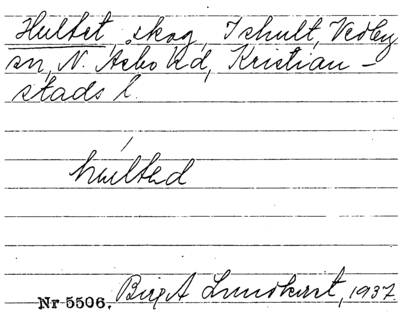 Hultet, skog, Ishult, Vedby
sn, N. Åsbo hd, Kristian-
stads l.
hultəd
Nr 5506. Birgit Lundkvist, 1937.